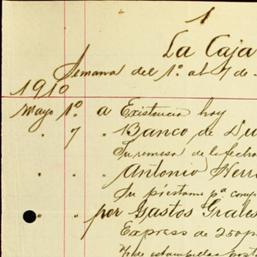 1
La Caja
Semana del 1º al 7 de
1910
Mayo 1º a Existencia hoy
" 7 " Banco de Du
Su remesa de la fecha
" Antonio Herre
Su préstamo pª comp
" " por Gastos Grales
Express de 250 p